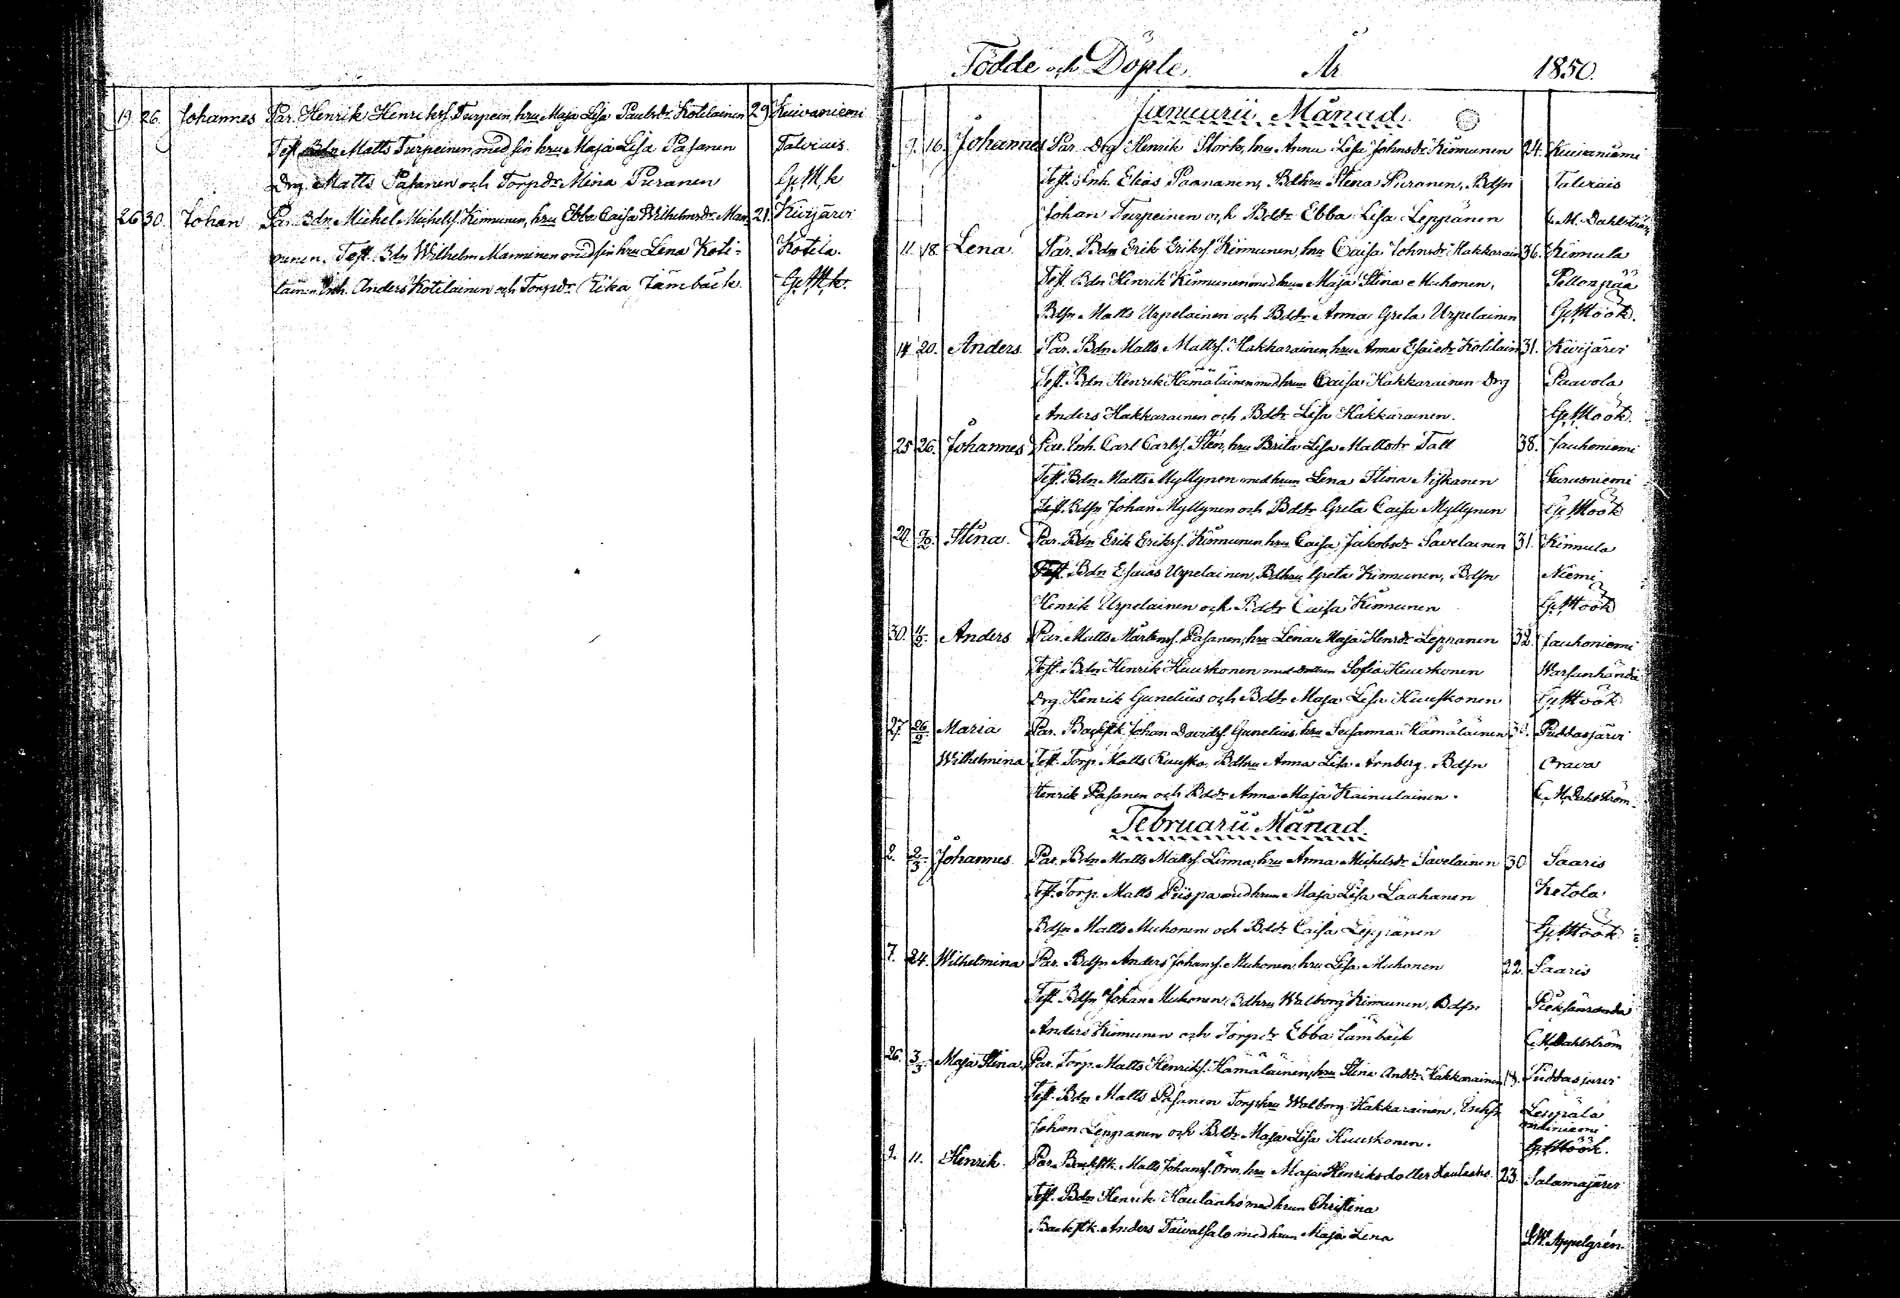 19. 26. Johannes Par. Henrik Henrikss. Turpein, hru Maja Lisa Paulsdr Kotilainen 29 Kuivaniemi
Test. Matts Turpeinen med sin hru Maja Lisa Pasanen Talviais.
Drg. Matts Pasanen och Torpdr Mina Puranen G. M. k
26 30. Johan Par. Bdn Michel Michelss. Kinnunen, hru Ebba Caisa Wilhelmsdr Man- 21. Kivijärvi
ninen. Test. Bdn Wilhelm Manninen med sin hru Lena Koti- Kotila.
lainen Inh. Anders Kotilainen och Torpdr Fika Jämbäck. G. M. k.
Födde och Döpte År 1850.
Januarii Månad.
9. 16. Johannes Par. Drg Henrik Stork, hru Anna Lisa Johnsdr Kinnunen 24. Kuivaniemi
Test. Inh. Elias Paananen, Bdhru Stina Puranen, Bdsn Talviais
Johan Turpeinen och Bddr Ebba Lisa Leppänen C. M. Dahlström
11. 18. Lena Par. Bdn Erik Erikss. Kinnunen, hru Caisa Johnsdr Hakkarain 36. Kinnula
Test. Bdn Henrik Kinnunen med hrun Maja Stina Muhonen, Peltonpää
Bdsn Matts Urpelainen och Bddr Anna Greta Urpelainen G. M. Höök.
14 20. Anders Par. Bdn Matts Mattss. Hakkarainen, hru Anna Esaiedr Kotilain 31. Kivijärvi
Test. Bdn Henrik Hämäläinen med hrun Caisa Hakkarainen Drg Paavola
Anders Hakkarainen och Bddr Lisa Hakkarainen. G. M. Höök.
25 26. Johannes Par. Inh. Carl Carlss. Sten, hru Brita Lisa Mattsdr Tall 38. Jauhoniemi
Test. Bdn Matts Myllynen med hrun Lena Stina Niskanen Surusniemi
Test. Bdsn Johan Myllynen och Bddr Greta Caisa Myllynen G. M. Höök
Stina. Par. Bdn Erik Erikss. Kinnunen, hru Caisa Jakobsdr Savelainen 31. Kinnula
Test. Bdn Esaias Urpelainen, Bdhru Greta Kinnunen, Bdsn Niemi
Henrik Urpelainen och Bddr Caisa Kinnunen G. M. Höök
30. 11/2 Anders Par. Matts Mårtenss. Pasanen, hru Lena Maja Henrsdr Leppänen 32. Jauhoniemi
Test. Bdn Henrik Kuuskonen med hrun Sofia Kuuskonen Warsanhändä
Drg. Henrik Gunelius och Bddr Maja Lisa Kuuskonen G. M. Höök
27. 26/2 Maria Par. Backstk Johan Davidss. Gunelius, hru Susanna Hämäläinen Puddasjärvi
Wilhelmina Test. Torp. Matts Ruuska, Bdhru Anna Lisa Arnberg, Bdsn Orava
Henrik Pasanen och Bddr Anna Maja Kainulainen. C. M. Dahlström.
Februarii Månad.
2. 2/3 Johannes. Par. Bdn Matts Mattss. Linna, hru Anna Michelsdr Savelainen 30. Saaris
Test. Torp. Matts Piispa med hrun Maja Lisa Laahanen Ketola
Bdsn Matts Muhonen och Bddr Caisa Leppänen G. M. Höök
7. 24. Wilhelmina Par. Bdsn Anders Johanss. Muhonen, hru Lisa Muhonen 22. Saaris
Test. Bdsn Johan Muhonen, Bdhru Walborg Kinnunen, Bdsn
Anders Kinnunen och Torpdr Ebba Jämbäck C. M. Dahlström
26. 3/3 Maja Stina. Par. Torp. Matts Henrikss. Hämäläinen, hru Stina Andsdr Hakkarainen Puddasjärvi
Test. Bdn Matts Pasanen Torphru Walborg Hakkarainen, Inhsn Leppälä
Johan Leppanen och Bddr Maja Lisa Kuuskonen. G. M. Höök.
9. 11. Henrik. Par. Backstk. Matts Johanss. Örn, hru Maja Henriksdotter Haulaaho. 23. Salamajärvi
Test. Bdn Henrik Haulaaho med hrun Christina
Backstk Anders Taivalsalo med hrun Maja Lena L. W. Appelgrén.